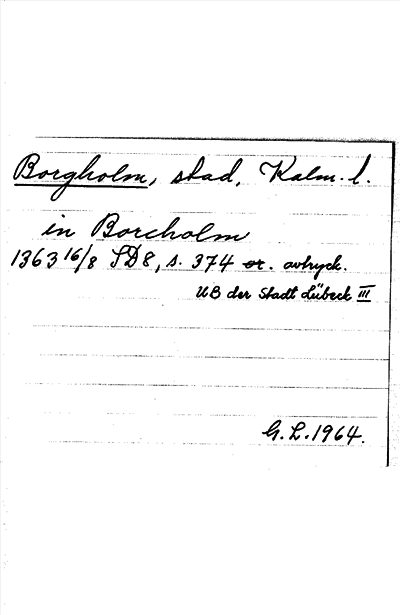 Borgholm, stad, Kalm. l.
in Borcholm
1363 16/8 SD 8, s. 374 or. avtryck.
UB der Stadt Lübeck III
G. L. 1964.